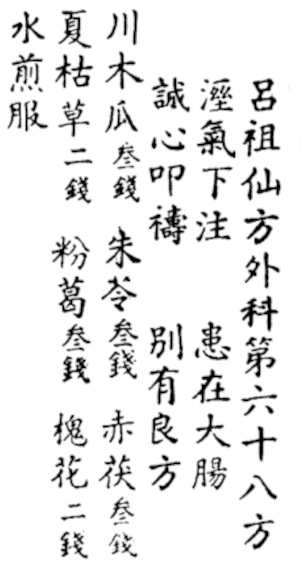 呂祖仙方外科第六十八方
溼氣下注　患在大腸
誠心叩禱　別有良方
川木瓜叁錢　朱苓叁錢　赤茯叁錢
夏枯草二錢　粉葛叁錢　槐花二錢
水煎服